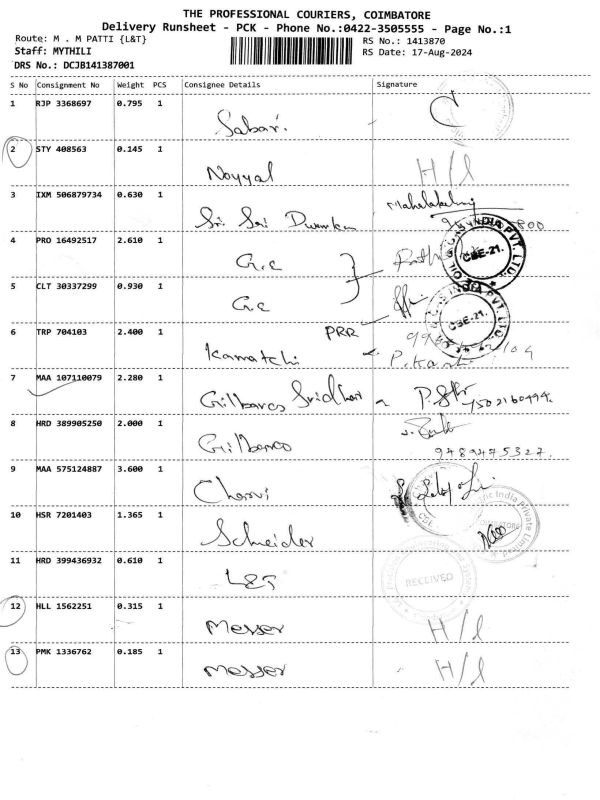 THE PROFESSIONAL COURIERS, COIMBATORE
Delivery Runsheet - PCK - Phone No.:0422-3505555 - Page No.:1
Route: M . M PATTI {L&T}
RS No.: 1413870
Staff: MYTHILI
RS Date: 17-Aug-2024
DRS No.: DCJB141387001
S No Consignment No Weight PCS Consignee Details Signature
1 RJP 3368697 0.795 1 Sabari.
2 STY 408563 0.145 1 Noyyal H/l
3 IXM 506879734 0.630 1 Sri Sai
4 PRO 16492517 2.610 1 G.C
INDIA PVT. LTD.
CBE-21.
5 CLT 30337299 0.930 1 G.C
INDIA PVT. LTD.
CBE-21.
PRR
6 TRP 704103 2.400 1 Kamatchi
7 MAA 107110079 2.280 1 Gilbarco Sridhari
8 HRD 389905250 2.000 1 Gilbarco
9489475327.
9 MAA 575124887 3.600 1 Charvi
10 HSR 7201403 1.365 1 Schneider
India Private Limited
11 HRD 399436932 0.610 1 L&T
RECEIVED
12 HLL 1562251 0.315 1 Messer H/l
13 PMK 1336762 0.185 1 Messer H/l